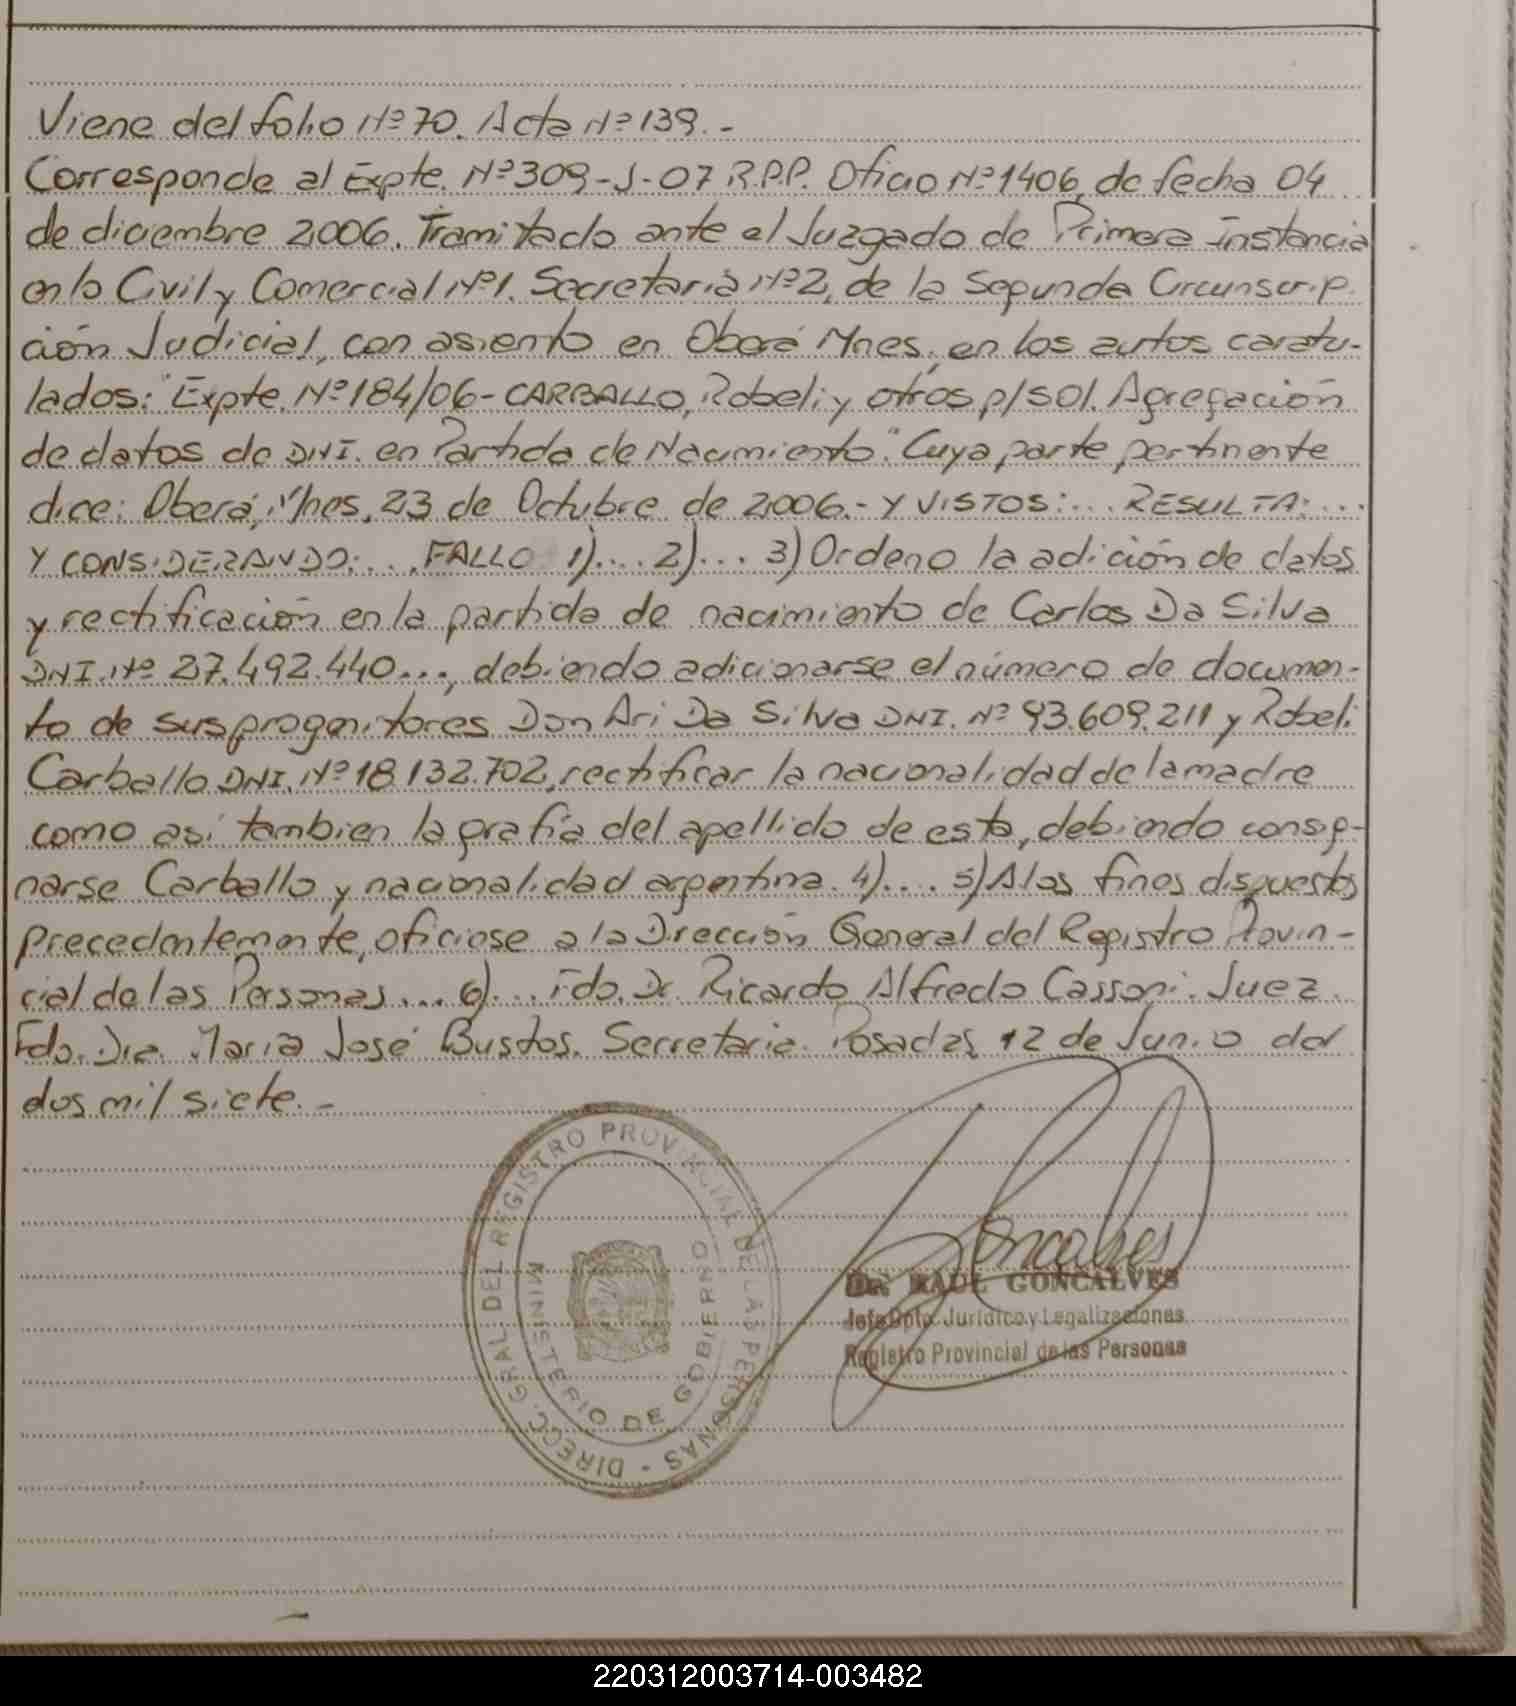 Viene del folio Nº 70. Acta Nº 139.-
Corresponde al Expte. Nº 309-J-07 R.P.P. Oficio Nº 1406, de fecha 04
de diciembre 2006. Tramitado ante el Juzgado de Primera Instancia
en lo Civil y Comercial Nº 1. Secretaria Nº 2, de la Segunda Circunscrip-
ción Judicial, con asiento en Oberá Mnes, en los autos caratu-
lados: "Expte. Nº 184/06 - CARBALLO, Robeli y otros p/ SOl. Agregación
de datos de DNI. en Partida de Nacimiento". Cuya parte pertinente
dice: Oberá, Mnes, 23 de Octubre de 2006.- Y VISTOS: ... RESULTA: ...
Y CONSIDERANDO: ... FALLO 1)... 2)... 3) Ordeno la adición de datos
y rectificación en la partida de nacimiento de Carlos Da Silva
DNI. Nº 27.492.440..., debiendo adicionarse el número de documen-
to de sus progenitores Don Ari Da Silva DNI. Nº 93.609.211 y Robeli
Carballo DNI. Nº 18.132.702, rectificar la nacionalidad de la madre
como así tambien la grafía del apellido de esta, debiendo consig-
narse Carballo y nacionalidad argentina. 4).... 5) A los fines dispuestos
precedentemente, ofíciese a la Dirección General del Registro Provin-
cial de las Personas... 6)... Fdo. Dr. Ricardo Alfredo Cassoni. Juez.
Fdo. Dra. María José Bustos. Secretaria. Posadas, 12 de Junio del
dos mil siete.-
DIRECC. GRAL. DEL REGISTRO PROVINCIAL DE LAS PERSONAS -
MINISTERIO DE GOBIERNO
Goncalves
DR. RAUL GONCALVES
Jefe Dpto. Jurídico y Legalizaciones
Registro Provincial de las Personas
220312003714-003482